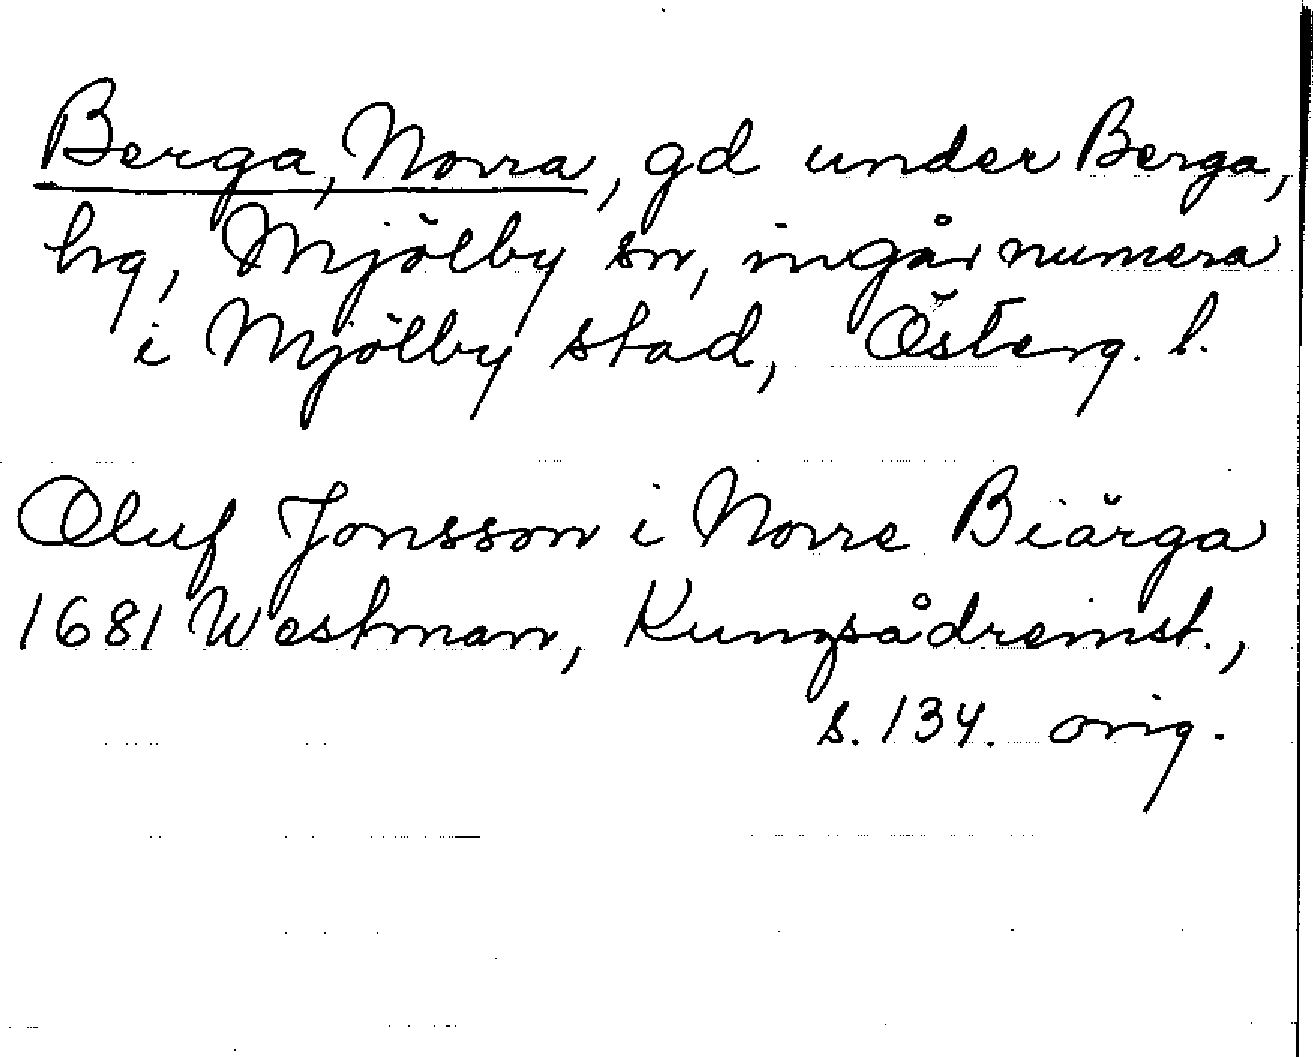 Berga, Norra, gd under Berga,
hg, Mjölby sn, ingår numera
i Mjölby stad, Österg. l.
Oluf Jonsson i Norre Biärga
1681 Westman, Kungsådreinst.,
s. 134. orig.